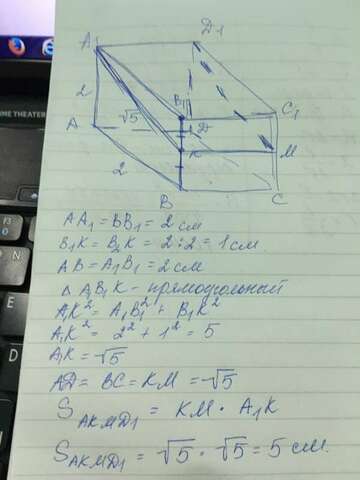 HOME THEATER
A₁
D₁
2
B₁
C₁
√5
A
D
K
M
2
B
C
AA₁ = BB₁ = 2 см
B₁K = B₂K = 2:2 = 1 см
AB = A₁B₁ = 2 см
△ A₁B₁K - прямоугольный
A₁K² = A₁B₁² + B₁K²
A₁K² = 2² + 1² = 5
A₁K = √5
AD = BC = KM = √5
S AKMD₁ = KM · A₁K
S AKMD₁ = √5 · √5 = 5 см.